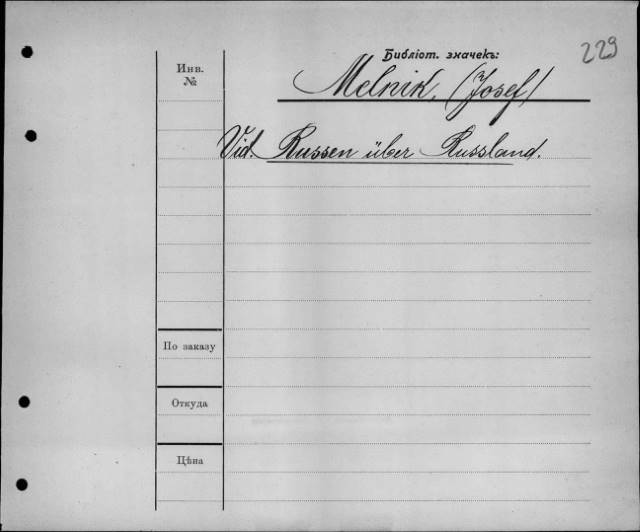 Библіот. значекъ:
229
Инв.
№
Melnik, (Josef)
Vid. Russen über Russland.
По заказу
Откуда
Цѣна